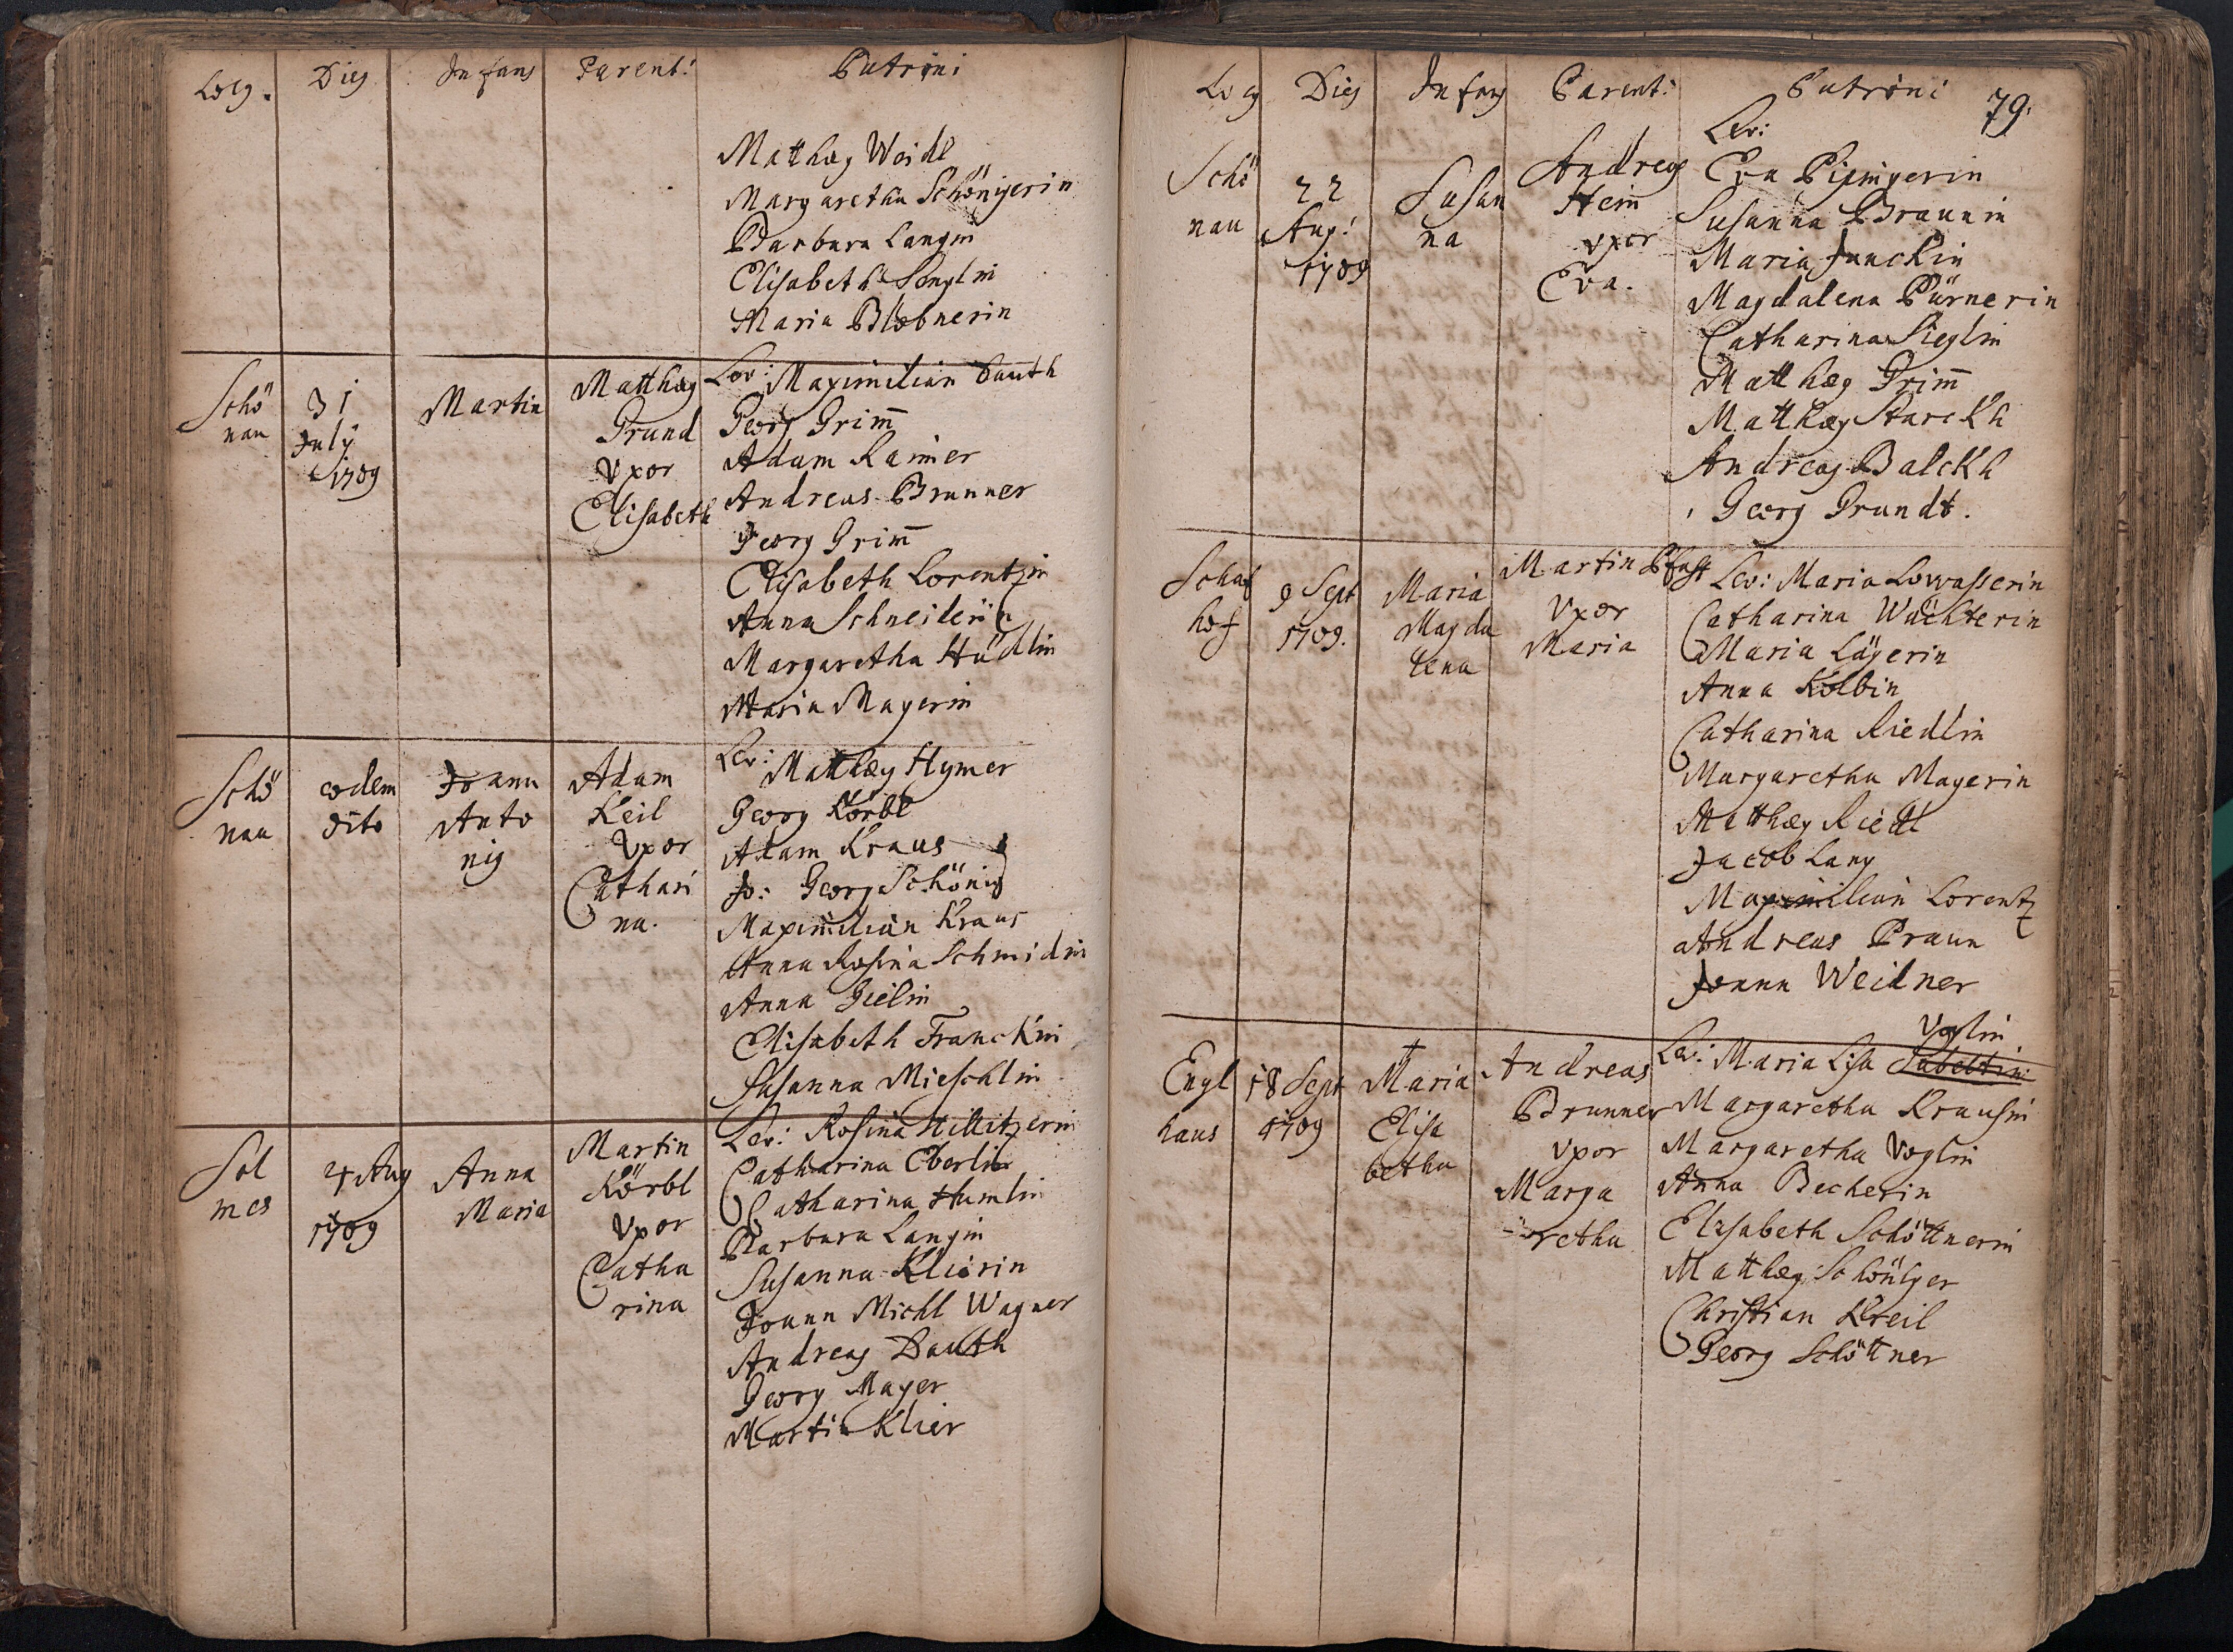 Locg. Dies Infans Parent: Patrini
Matthæg Weidl
Margaretha Schönigerin
Barbara Langin
Elisabeth Senglin
Maria Blobnerin
Schö
nau
31
July
1709
Martin
Matthæg
Grund
Vxor
Elisabeth
Lev: Maximilian Dauth
Georg Grim̅
Adam Raimer
Andreas Brunner
Georg Grim̅
Elisabeth Lorentzin
Anna Schneiderin
Margaretha Hüdlin
Maria Mayerin
Schö
nau
eodem
dito
Joann
Anto
nig
Adam
Keil
Vxor
Cathari
na.
Lev: Matthæg Hymer
Georg Körbl
Adam Kraus
Jo: Georg Schönig
Maximilian Kraus
Anna Rosina Schmidin
Anna Gielin
Elisabeth Franckin
Susanna Mieschlin
Sol
mes
4 Aug
1709
Anna
Maria
Martin
Körbl
Vxor
Catha
rina
Lev: Rosina Hillitzerin
Catharina Eberlin
Catharina Humlin
Barbara Langin
Susanna Klierin
Joann Michl Wagner
Andreas Dauth
Georg Mayer
Martin Klier
Locg Dies Infans Parent: Patrini 79.
Schö
nau
22
Aug:
1709
Susan
na
Andreas
Heim̅
vxor
Eva.
Lev:
Eva
Susanna Braunin
Maria Junckin
Magdalena Pürnerin
Catharina Sieglin
Matthæg Grim̅
Matthæg Starckh
Andreas Balckh
Georg Grundt.
Schaf
hof
9 Sept
1709.
Maria
Magda
lena
Martin
Vxor
Maria
Lev: Maria Lowasserin
Catharina Wächterin
Maria Lägerin
Anna Kolbin
Catharina Riedlin
Margaretha Mayerin
Matthæg Riedl
Jacob Lang
Maximilian Lorentz
Andreas Praun
Joann Weidner
Engl
haus
18 Sept
1709
†
Maria
Elisa
betha
Andreas
Brunner
vxor
Marga
retha
Voglin
Lev: Maria Lisa
Margaretha Krausin
Margaretha Voglin
Anna Becherin
Elisabeth Schöttnerin
Matthæg Schöniger
Christian Kreil
Georg Schöttner